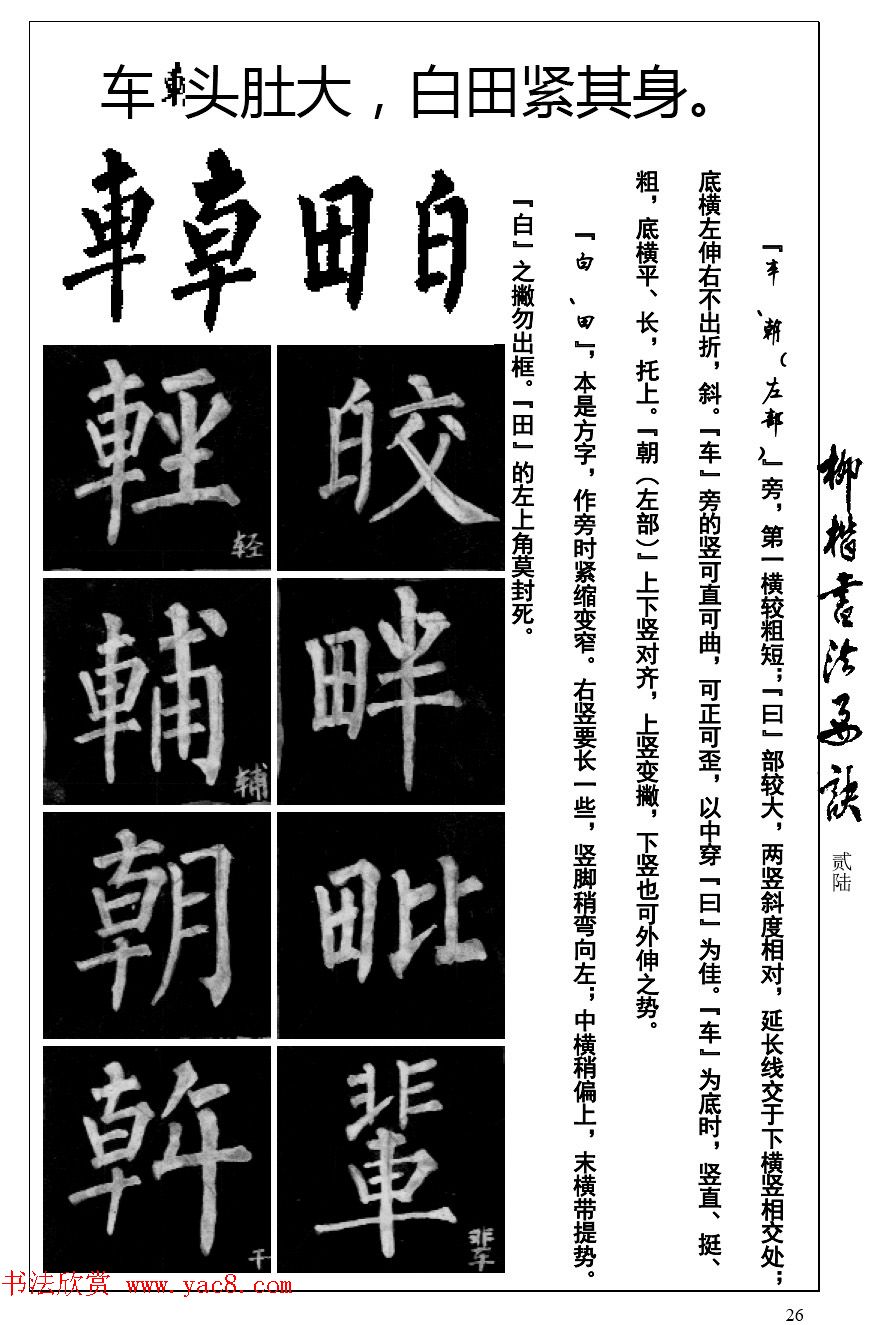 车 𠦝头肚大，白田紧其身。
車 𠦝 田 白
『车、朝（左部）』旁，第一横较粗短；『曰』部较大，两竖斜度相对，延长线交于下横竖相交处；
底横左伸右不出折，斜。『车』旁的竖可直可曲，可正可歪，以中穿『曰』为佳。『车』为底时，竖直、挺、
粗，底横平、长，托上。『朝（左部）』上下竖对齐，上竖变撇，下竖也可外伸之势。
『白、田』，本是方字，作旁时紧缩变窄。右竖要长一些，竖脚稍弯向左；中横稍偏上，末横带提势。
『白』之撇勿出框。『田』的左上角莫封死。
輕 轻 皎
輔 辅 畔
朝 毗
干 輩 辈
柳楷书法要诀
贰陆
书法欣赏 www.yac8.com
26